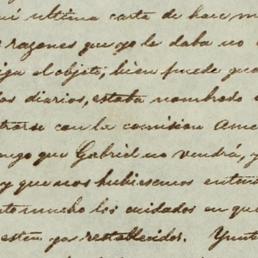 ultima carta de hace
razones que yo le daba no
el objeto, bien puede
diarios, estaba nombrado
con la comision
que Gabriel no vendrá,
y que nos hubiesemos
mucho los cuidados en que
esten ya restablecidos.